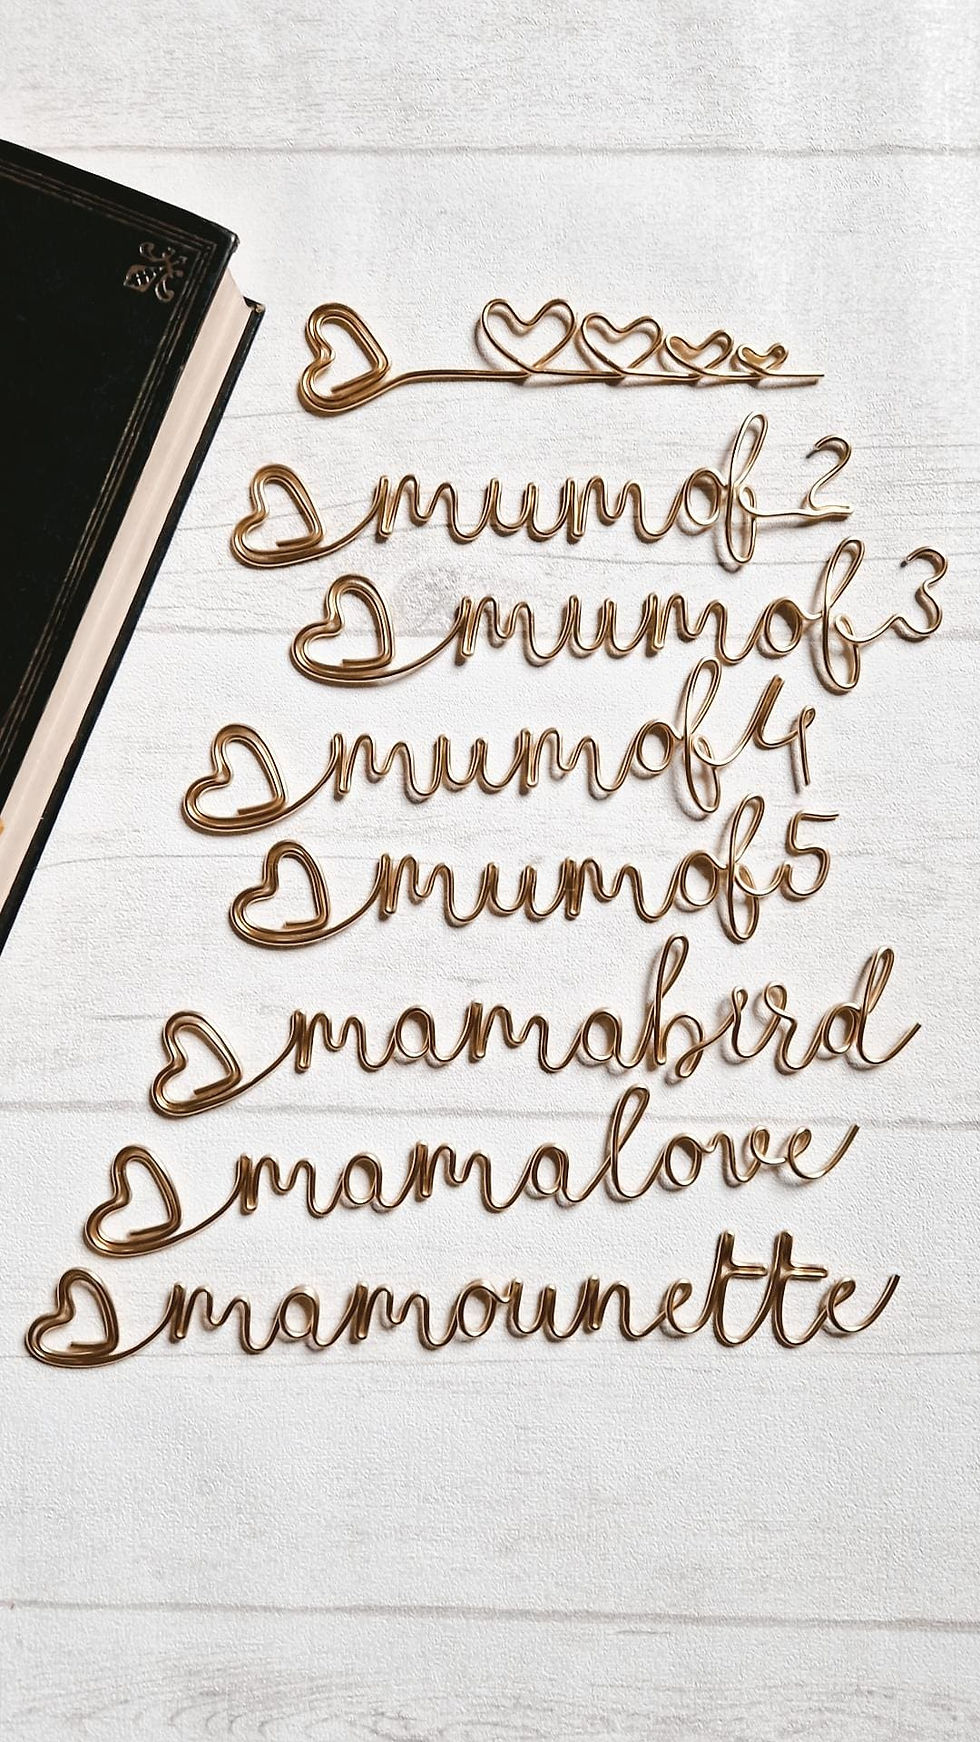 mumof2
mumof3
mumof4
mumof5
mamabird
mamalove
mamounette